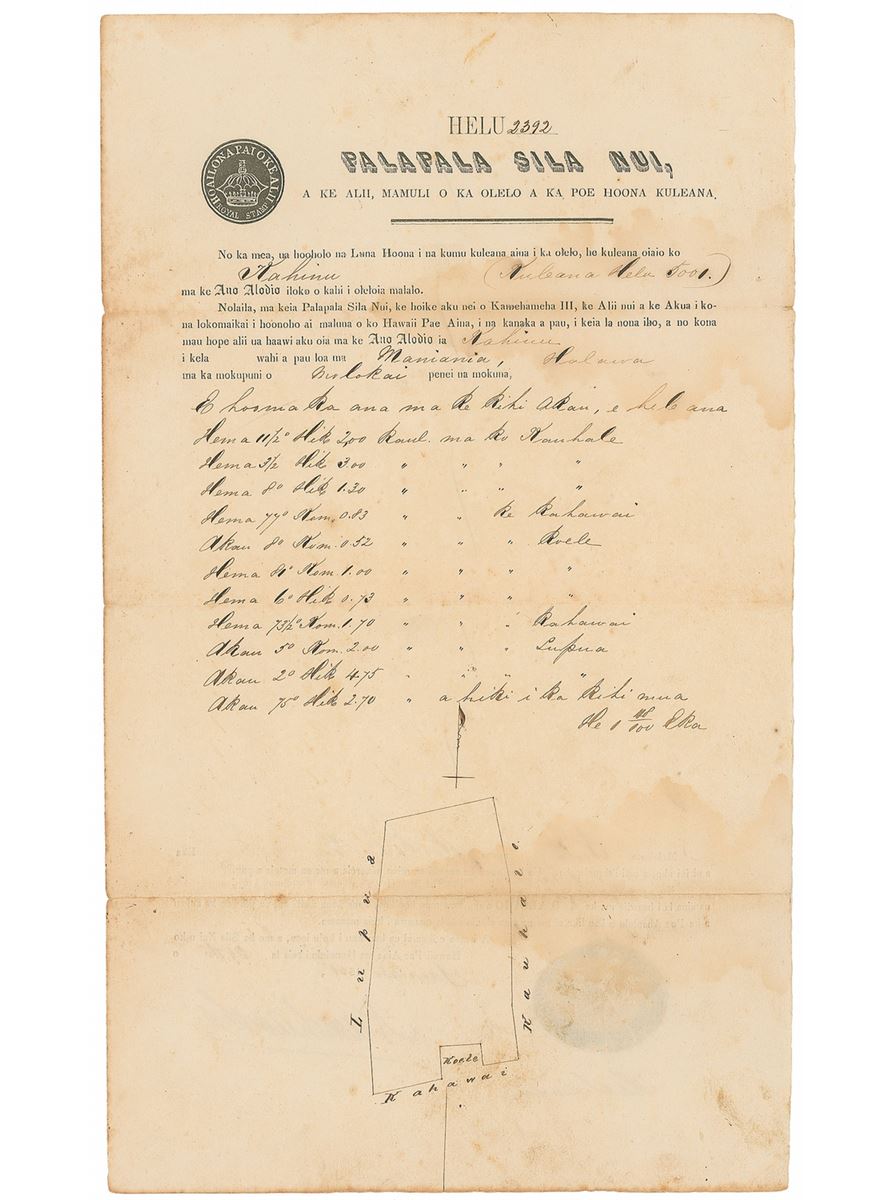 HELU 2392
HOAILONA PAI O KE ALII
ROYAL STAMP
PALAPALA SILA NUI,
A KE ALII, MAMULI O KA OLELO A KA POE HOONA KULEANA.
No ka mea, ua hooholo na Luna Hoona i na kumu kuleana aina i ka olelo, he kuleana oiaio ko
Kahinu (Kuleana Helu 5001.)
ma ke Ano Alodio iloko o kahi i oleloia malalo.
Nolaila, ma keia Palapala Sila Nui, ke hoike aku nei o Kamehameha III, ke Alii nui a ke Akua i ko-
na lokomaikai i hoonoho ai maluna o ko Hawaii Pae Aina, i na kanaka a pau, i keia la nona iho, a no kona
mau hope alii ua haawi aku oia ma ke Ano Alodio ia Kahinu
i kela wahi a pau loa ma Maniania, Halawa
ma ka mokupuni o Molokai penei na mokuna,
E hoomaka ana ma ke kihi Akau, e hele ana
Hema 11½° Hik 2,00 Kaul. ma ko Kauhale
Hema 3½ Hik 3.00 " " " "
Hema 8° Hik 1.30 " " " "
Hema 77° Kom. 0.83 " " ke Kahawai
Akau 8° Kom. 0.52 " " " Koele
Hema 81° Kom. 1.00 " " " "
Hema 6° Hik 0.73 " " " "
Hema 73½° Kom. 1.70 " " " Kahawai
Akau 5° Kom. 2.00 " " " Lupua
Akau 2° Hik 4.75 " " " "
Akau 75° Hik 2.70 " a hiki i ka kihi mua
He 1 /100 Eka
Lupua
Kauhale
Koele
Kahawai